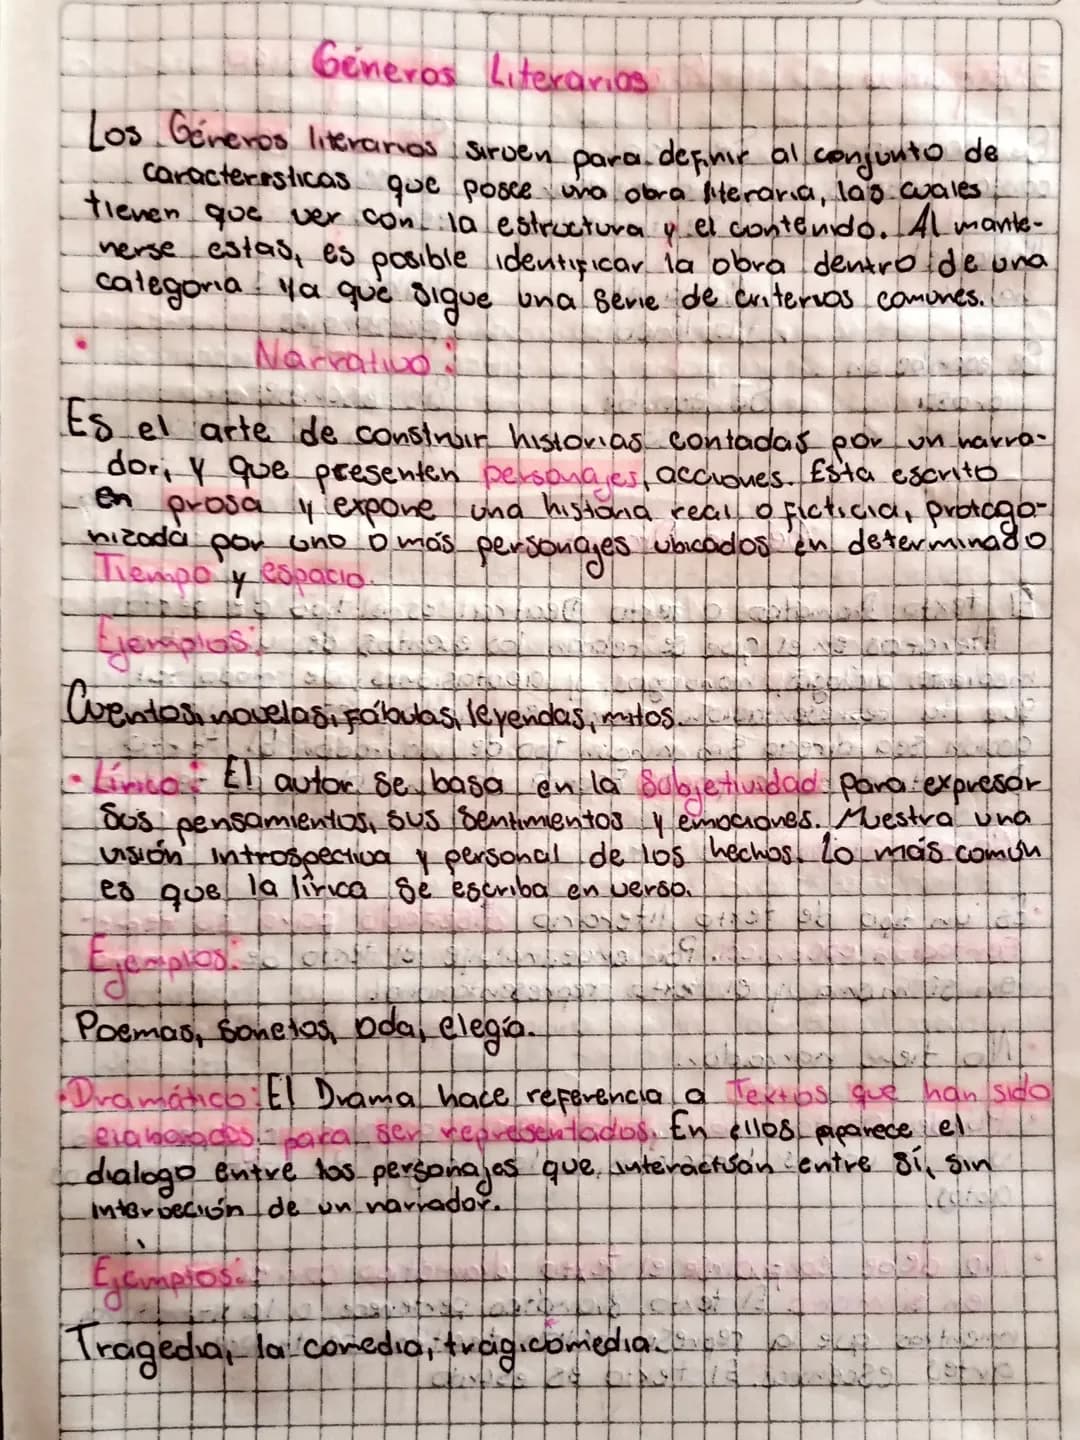 Géneros Literarios
Los Géneros literarios sirven para definir al conjunto de
caracteristicas que posee una obra literaria, las cuales
tienen que ver con la estructura y el contenido. Al mante-
nerse estas, es posible identificar la obra dentro de una
categoria ya que sigue una serie de criterios comunes.
• Narrativo:
Es el arte de construir historias contadas por un narra-
dor, y que presenten personajes, acciones. Esta escrito
en prosa y expone una historia real o ficticia, protago-
nizada por uno o más personajes ubicados en determinado
Tiempo y espacio.
Ejemplos:
Cuentos, novelas, fábulas, leyendas, mitos.
• Lírico: El autor se basa en la Subjetividad para expresar
sus pensamientos, sus sentimientos y emociones. Muestra una
visión introspectiva y personal de los hechos. Lo más común
es que la lírica se escriba en verso.
Ejemplos:
Poemas, sonetos, oda, elegía.
• Dramático: El Drama hace referencia a Textos que han sido
elaborados para ser representados. En ellos aparece el
dialogo entre los personajes que interactúan entre sí, sin
interbeción de un narrador.
Ejemplos:
Tragedia, la comedia, tragicomedia.